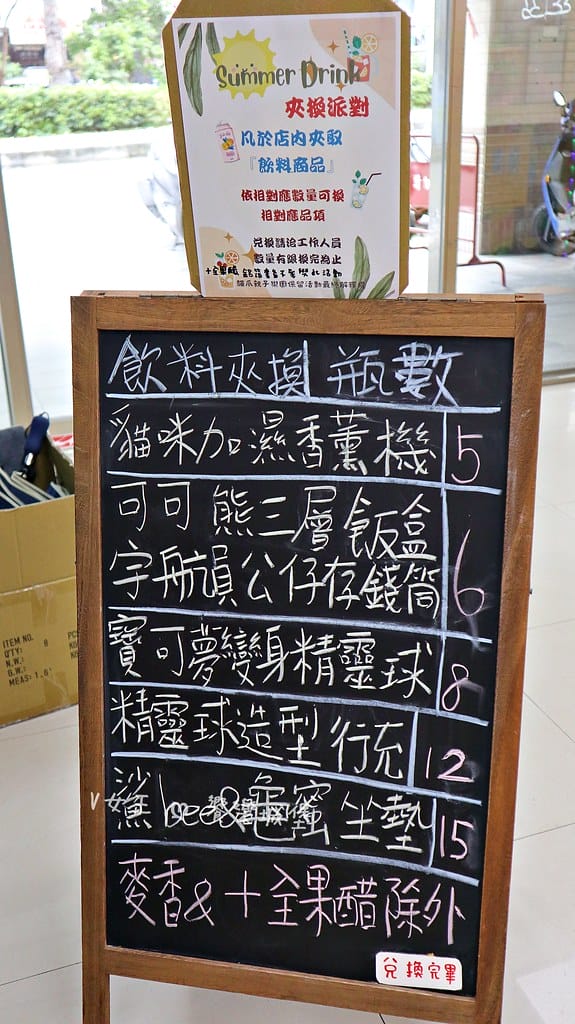 Summer Drink
夾換派對
凡於店內夾取
『飲料商品』
依相對應數量可換
相對應品項
兌換請洽工作人員
數量有限換完為止
貓爪親子樂園保留活動最終解釋權
飲料夾換 瓶數
貓咪加濕香薰機 5
可可熊三層飯盒
宇航員公仔存錢筒 6
寶可夢變身精靈球 8
精靈球造型行充 12
鯊bee&龜蜜坐墊 15
麥香&十全果醋除外
兌換完畢
ITEM NO. 8
Q'TY:
N.W.:
G.W.:
MEAS: